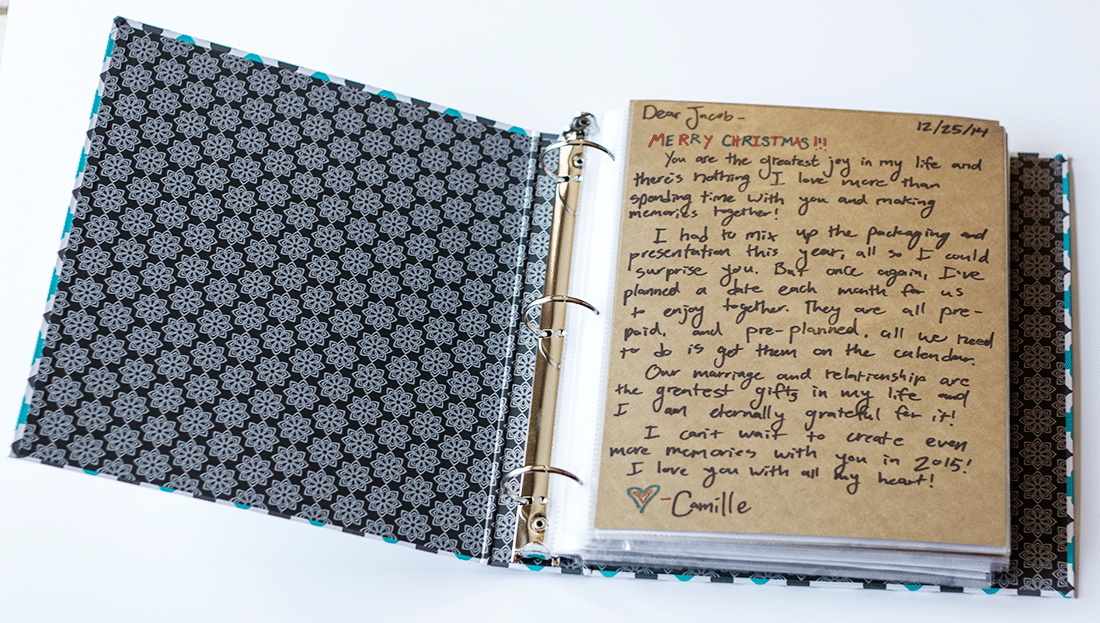 Dear Jacob-
12/25/14
MERRY CHRISTMAS!!!
You are the greatest joy in my life and
there's nothing I love more than
spending time with you and making
memories together!
I had to mix up the packaging and
presentation this year, all so I could
surprise you. But once again, I've
planned a date each month for us
to enjoy together. They are all pre-
paid, and pre-planned, all we need
to do is get them on the calendar.
Our marriage and relationship are
the greatest gifts in my life and
I am eternally grateful for it!
I can't wait to create even
more memories with you in 2015!
I love you with all my heart!
-Camille